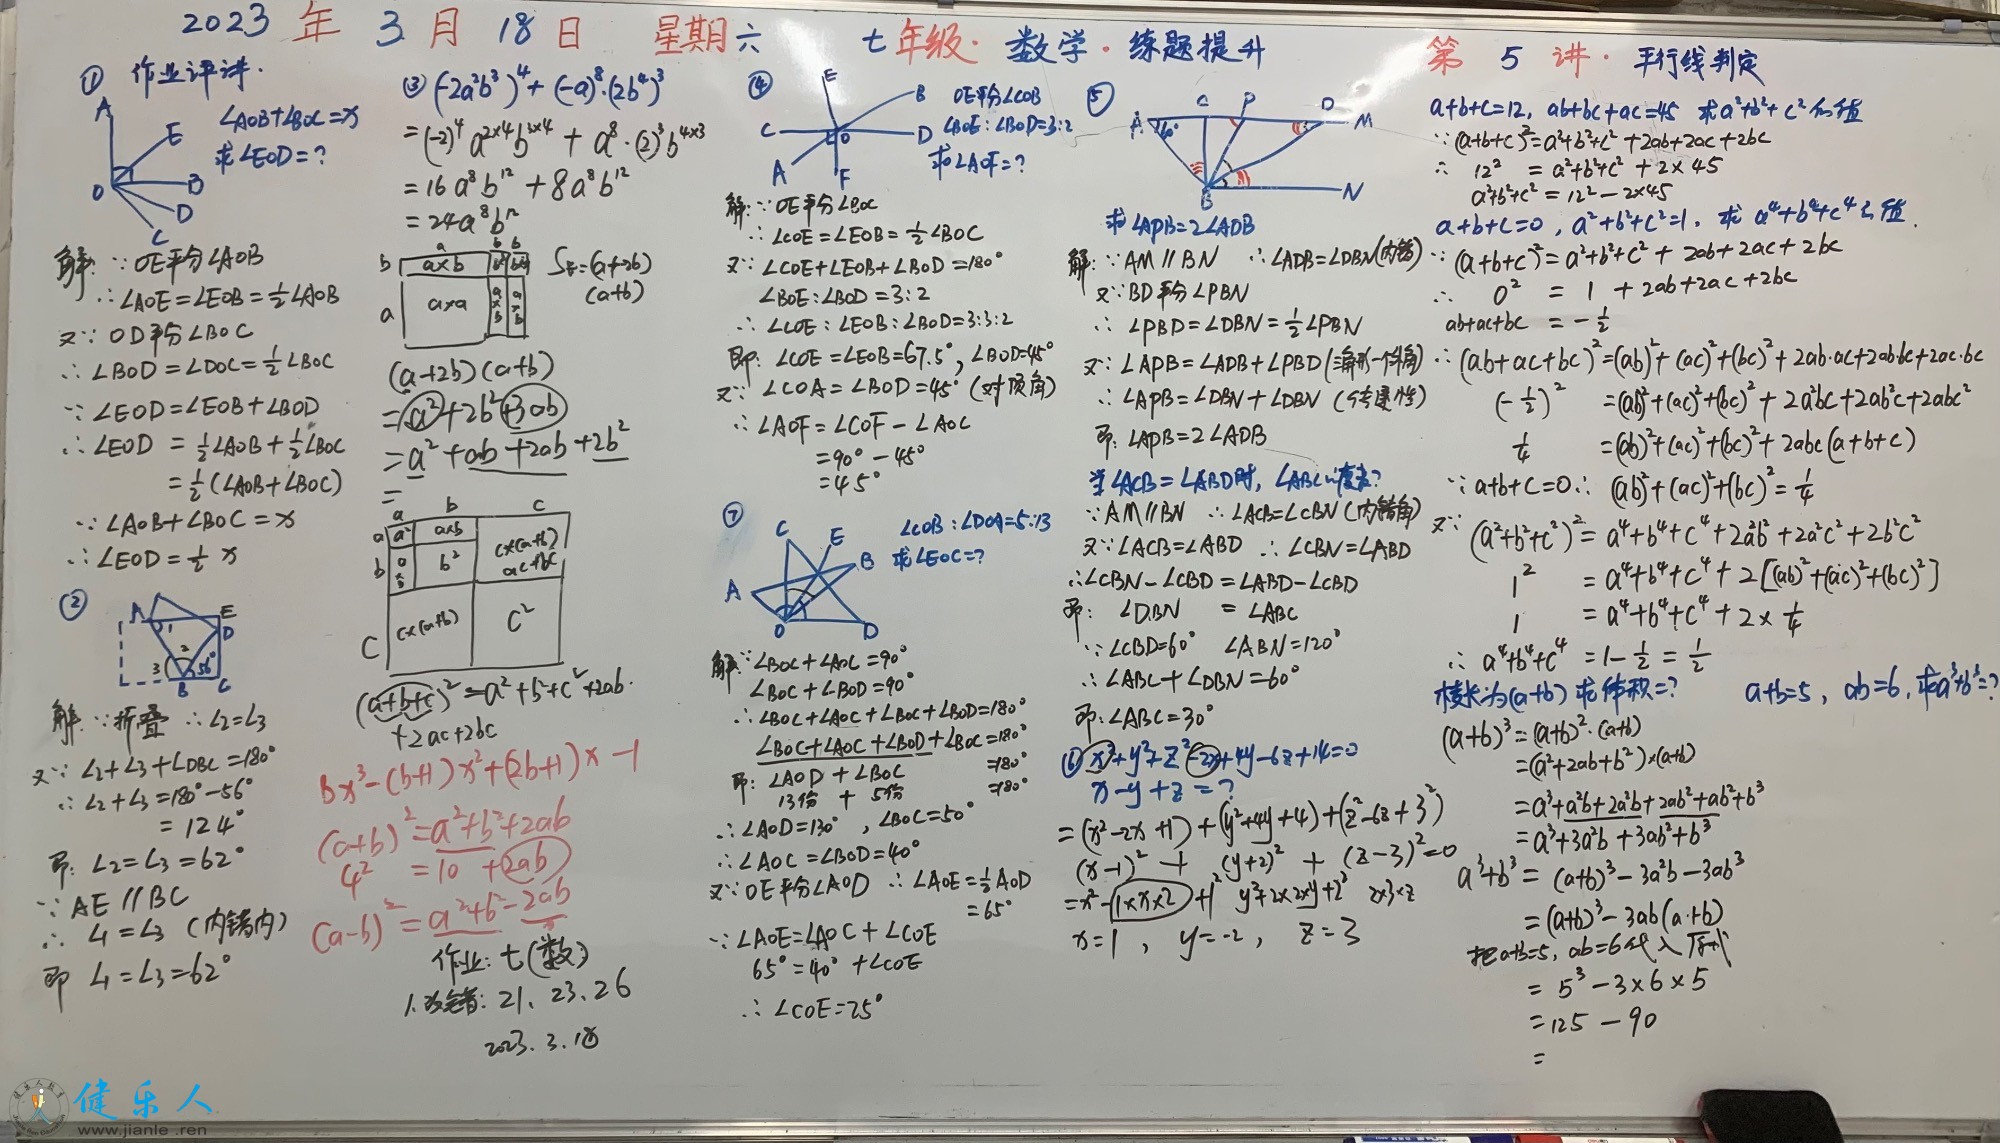 2023 年 3 月 18 日 星期六 七年级·数学·练题提升 第 5 讲·平行线判定
① 作业评讲.
A
E
B
D
C
O
∠AOB+∠BOC=x
求∠EOD=?
解:∵OE平分∠AOB
∴∠AOE=∠EOB=½∠AOB
又∵OD平分∠BOC
∴∠BOD=∠DOC=½∠BOC
∵∠EOD=∠EOB+∠BOD
∴∠EOD=½∠AOB+½∠BOC
=½(∠AOB+∠BOC)
∵∠AOB+∠BOC=x
∴∠EOD=½x
②
A E
D
1
2
3 56°
B C
解∵折叠 ∴∠2=∠3
又∵∠2+∠3+∠DBC=180°
∴∠2+∠3=180°-56°
=124°
即:∠2=∠3=62°
∵AE∥BC
∴∠1=∠3 (内错内)
即∠1=∠3=62°
③(-2a²b³)⁴+(-a)⁸·(2b⁴)³
=(-2)⁴a²ˣ⁴b³ˣ⁴+a⁸·(2)³b⁴ˣ³
=16a⁸b¹²+8a⁸b¹²
=24a⁸b¹²
a b b
b a×b b² b²
a a×a a×b a×b
S=(a+2b)
(a+b)
(a+2b)(a+b)
=a²+2b²+3ab
=a²+ab+2ab+2b²
=
a b c
a a² a×b c×(a+b)
ac+bc
b a×b b²
C c×(a+b) C²
(a+b+c)²=a²+b²+c²+2ab.
+2ac+2bc
Bx³-(b+1)x²+(2b+1)x-1
(a+b)²=a²+b²+2ab
4²=10+2ab
(a-b)²=a²+b²-2ab
作业:七(数)
1.改错:21、23、26
2023.3.18
④
E
B
C D
O
A F
OE平分∠COB
∠BOE:∠BOD=3:2
求∠AOF=?
解:∵OE平分∠BOC
∴∠COE=∠EOB=½∠BOC
又∵∠COE+∠EOB+∠BOD=180°
∠BOE:∠BOD=3:2
∴∠COE:∠EOB:∠BOD=3:3:2
即:∠COE=∠EOB=67.5°,∠BOD=45°
又∵∠COA=∠BOD=45°(对顶角)
∴∠AOF=∠COF-∠AOC
=90°-45°
=45°
⑦
C E
B
A
O D
∠COB:∠DOA=5:13
求∠EOC=?
解∵∠BOC+∠AOC=90°
∠BOC+∠BOD=90°
∴∠BOC+∠AOC+∠BOC+∠BOD=180°
∠BOC+∠AOC+∠BOD+∠BOC=180°
即:∠AOD+∠BOC=180°
13份+5份=180°
∴∠AOD=130°,∠BOC=50°
∴∠AOC=∠BOD=40°
又∵OE平分∠AOD ∴∠AOE=½AOD
=65°
∵∠AOE=∠AOC+∠COE
65°=40°+∠COE
∴∠COE=25°
⑤
A C P D M
60°
B N
求∠APB=2∠ADB
解:∵AM∥BN ∴∠ADB=∠DBN(内错)
又∵BD平分∠PBN
∴∠PBD=∠DBN=½∠PBN
又∵∠APB=∠ADB+∠PBD(三角形一外角)
∴∠APB=∠DBN+∠DBN(传递性)
即:∠APB=2∠ADB
当∠ACB=∠ABD时,∠ABC度数?
∵AM∥BN ∴∠ACB=∠CBN(内错角)
又∵∠ACB=∠ABD ∴∠CBN=∠ABD
∴∠CBN-∠CBD=∠ABD-∠CBD
即:∠DBN=∠ABC
∵∠CBD=60° ∠ABN=120°
∴∠ABC+∠DBN=60°
即:∠ABC=30°
⑥x²+y²+z²-2x+4y-6z+14=0
x-y+z=?
=(x²-2x+1)+(y²+4y+4)+(z²-6z+3²)
(x-1)²+(y+2)²+(z-3)²=0
=x²-1×x×2+1² y²+2×2×y+2² 2×3×z
x=1, y=-2, z=3
a+b+c=12, ab+bc+ac=45 求a²+b²+c²的值
∵(a+b+c)²=a²+b²+c²+2ab+2ac+2bc
∴12²=a²+b²+c²+2×45
a²+b²+c²=12²-2×45
a+b+c=0, a²+b²+c²=1, 求a⁴+b⁴+c⁴的值.
∵(a+b+c)²=a²+b²+c²+2ab+2ac+2bc
∴0²=1+2ab+2ac+2bc
ab+ac+bc=-½
∴(ab+ac+bc)²=(ab)²+(ac)²+(bc)²+2ab·ac+2ab·bc+2ac·bc
(-½)²=(ab)²+(ac)²+(bc)²+2a²bc+2ab²c+2abc²
¼=(ab)²+(ac)²+(bc)²+2abc(a+b+c)
∵a+b+c=0∴(ab)²+(ac)²+(bc)²=¼
又∵(a²+b²+c²)²=a⁴+b⁴+c⁴+2a²b²+2a²c²+2b²c²
1²=a⁴+b⁴+c⁴+2[(ab)²+(ac)²+(bc)²]
1=a⁴+b⁴+c⁴+2×¼
∴a⁴+b⁴+c⁴=1-½=½
棱长为(a+b)求体积=? a+b=5, ab=6,求a³+b³=?
(a+b)³=(a+b)²·(a+b)
=(a²+2ab+b²)×(a+b)
=a³+a²b+2a²b+2ab²+ab²+b³
=a³+3a²b+3ab²+b³
a³+b³=(a+b)³-3a²b-3ab³
=(a+b)³-3ab(a+b)
把a+b=5, ab=6代入原式
=5³-3×6×5
=125-90
=
健乐人
www.jianle.ren